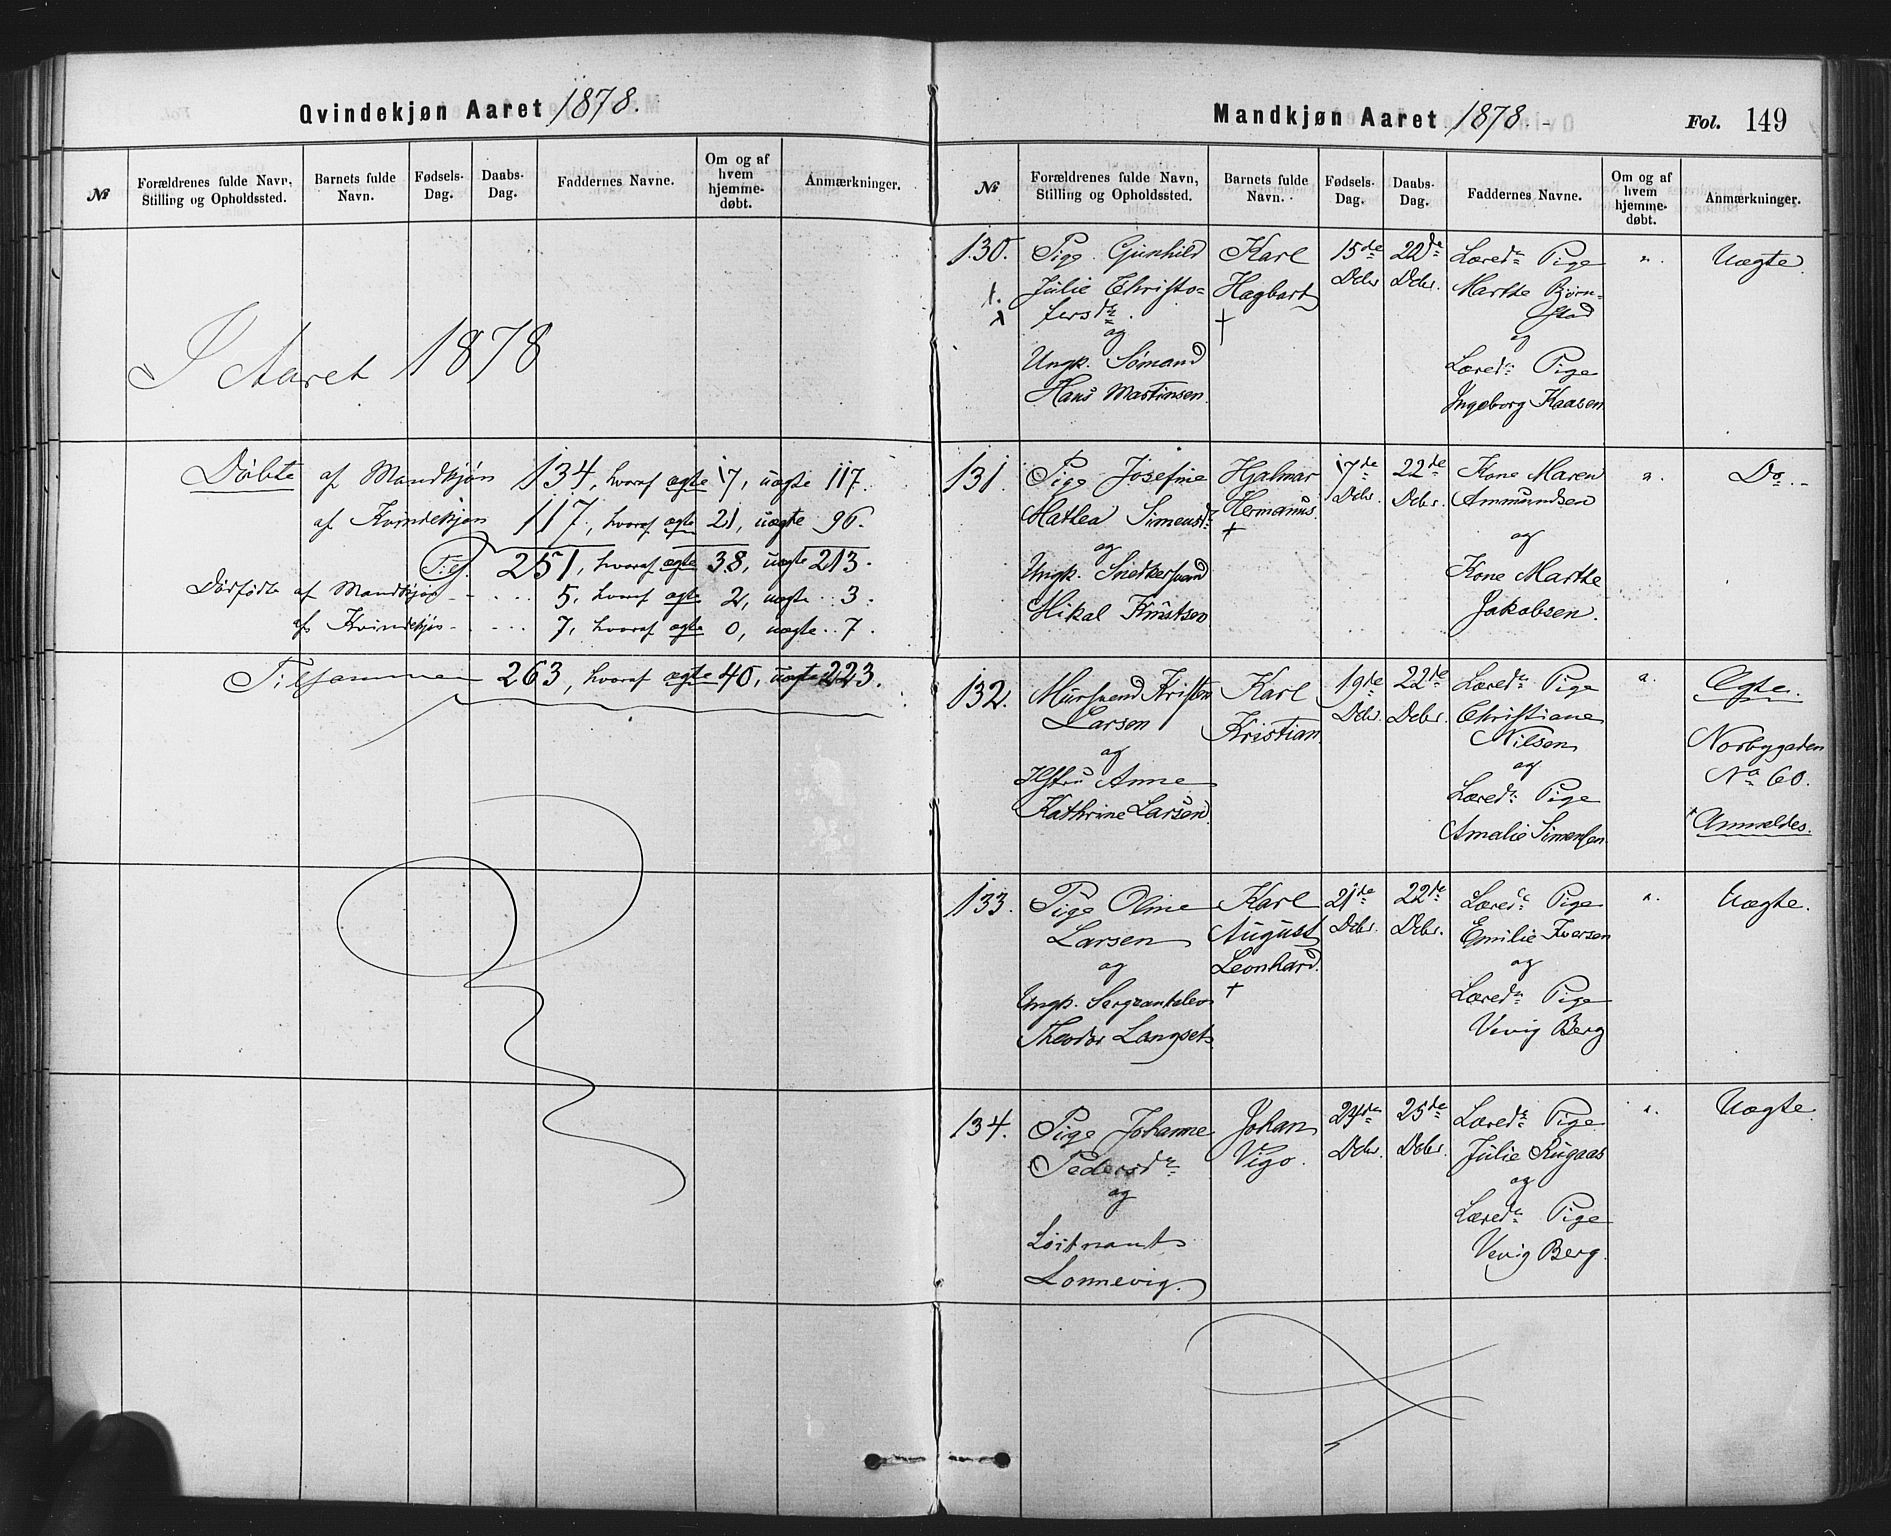 Qvindekjøn Aaret 1878.
№
Forældrenes fulde Navn, Stilling og Opholdssted.
Barnets fulde Navn.
Fødsels-Dag.
Daabs-Dag.
Faddernes Navne.
Om og af hvem hjemme-døbt.
Anmærkninger.
I Aaret 1878
Døbte af Mandkjøn 134, hvoraf ægte 17, uægte 117.
af Kvindekjøn 117, hvoraf ægte 21, uægte 96.
Tils. 251, hvoraf ægte 38, uægte 213.
Dødfødte af Mandkjøn - - - - 5, hvoraf ægte 2, uægte .. 3.
af Kvindekjøn - - - - 7, hvoraf ægte 0, uægte .. 7.
Tilsammen 263, hvoraf ægte 40, uægte 223.
Mandkjøn Aaret 1878.-
Fol. 149
№
Forældrenes fulde Navn, Stilling og Opholdssted.
Barnets fulde Navn.
Fødsels-Dag.
Daabs-Dag.
Faddernes Navne.
Om og af hvem hjemme-døbt.
Anmærkninger.
130.
Pige Gunhild
Julie Christo=
fersdr.
og
Ungk. Sømand
Hans Martinsen.
Karl
Hagbart
†
15de
Debr
22de
Debr.
Læredr. Pige
Marthe Bjørn-
stad
og
Læredr. Pige
Ingeborg Kaasen
".
Uægte.
131.
Pige Josefine
Mathea Simensdr
og
Ungk. Snedkersvend
Mikal Knutsen
Hjalmar
Hermanus.
†
17de
Debr.
22de
Debr.
Kone Maren
Ammundsen
og
Kone Marthe
Jakobsen.
".
Do. -
132.
Mursvend Kristen
Larsen
og
Hstru Anne
Kathrine Larsen.
Karl
Kristian.
19de
Debr.
22de
Debr.
Læredr. Pige
Christiane
Nilsen
og
Læredr. Pige
Amalie Simensen.
".
Ægte.
Norbygaden
No 60.
Anmeldes.
133.
Pige Oline
Larsen
og
Ungk. Sergeantelev
Theodor Langset.
Karl
August
Leonhard.
†
21de
Debr.
22de
Debr.
Læredr. Pige
Emilie Iversen
og
Læredr. Pige
Vevig Berg
".
Uægte.
134.
Pige Johanne
Pedersdr.
og
Løitnant
Lonnevig.
Johan
Vigo.
24de
Debr.
25de
Debr.
Læredr. Pige
Julie Rugaas
og
Læredr. Pige
Vevig Berg.
".
Uægte.